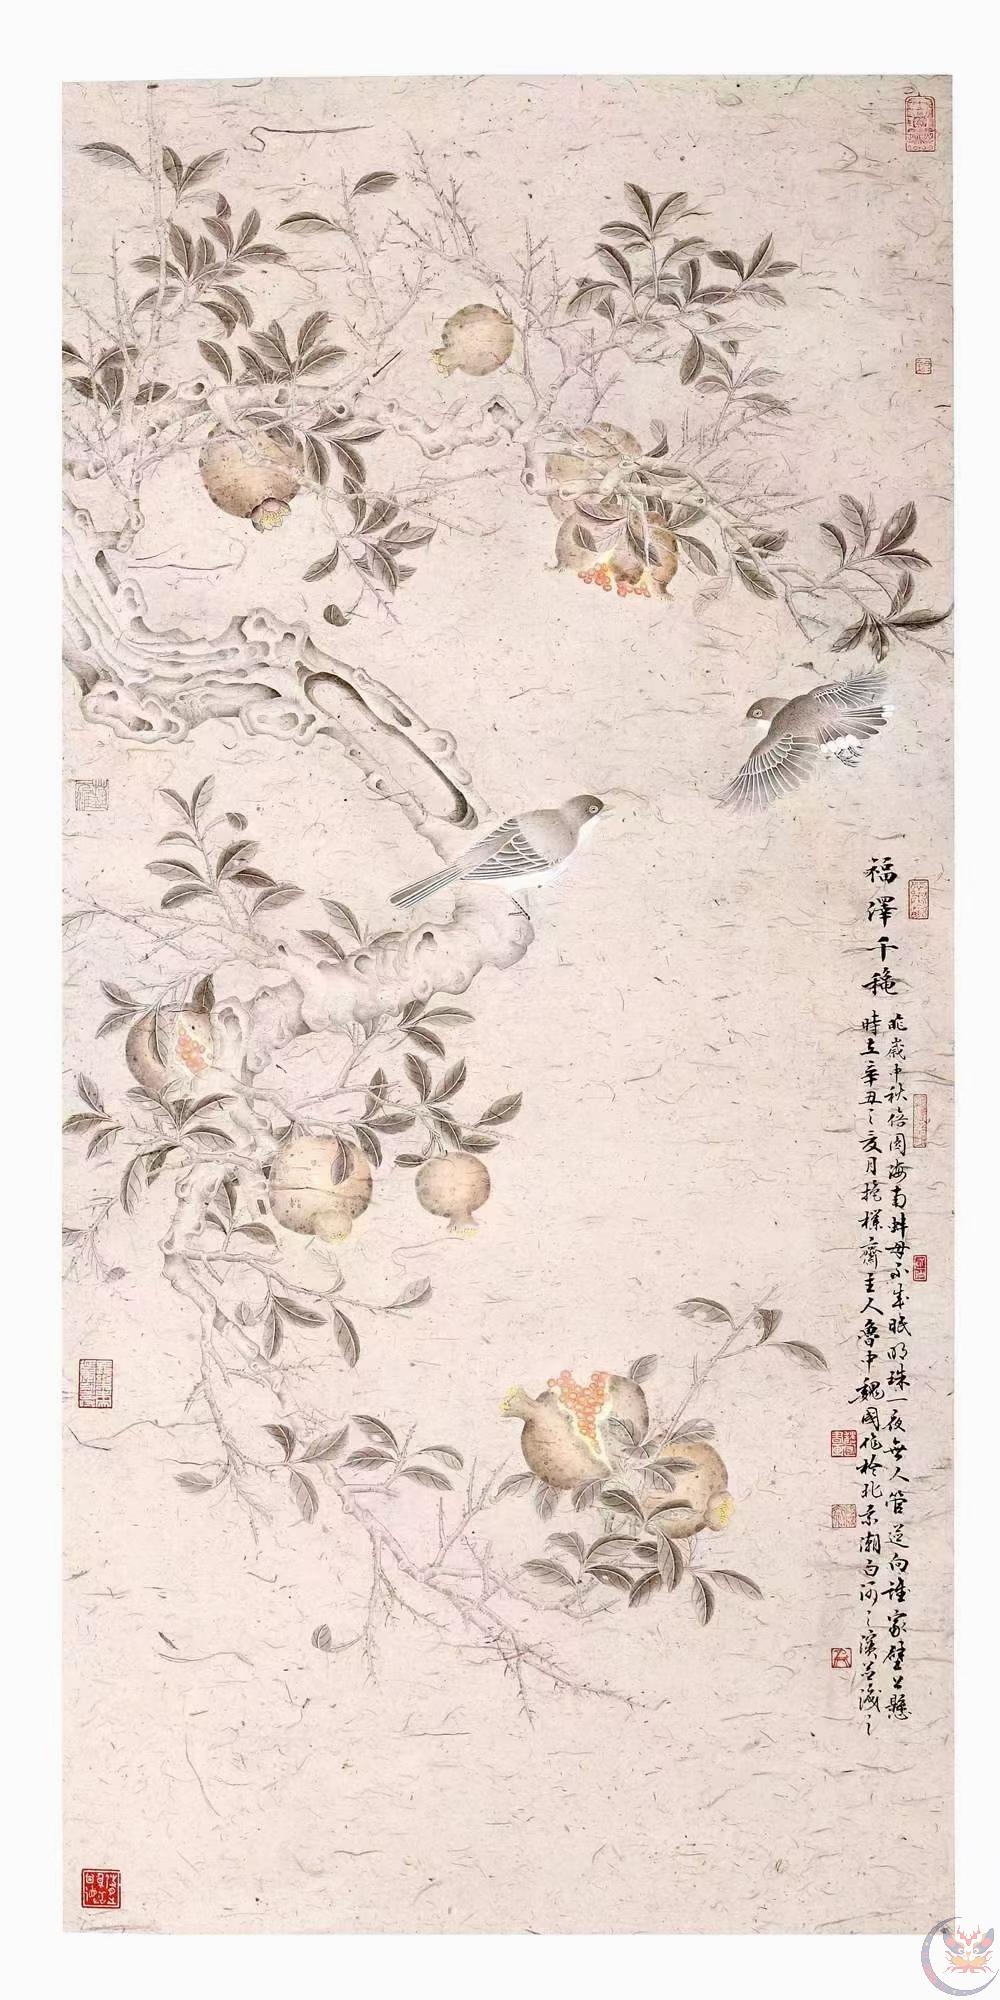 福澤千穐
昨歲中秋倍圓海南蚌母不成眠明珠一夜無人管迸向誰家壁上懸
時在辛丑之亥月抱樸齋主人魯中魏國作於北京潮白河之濱並識之